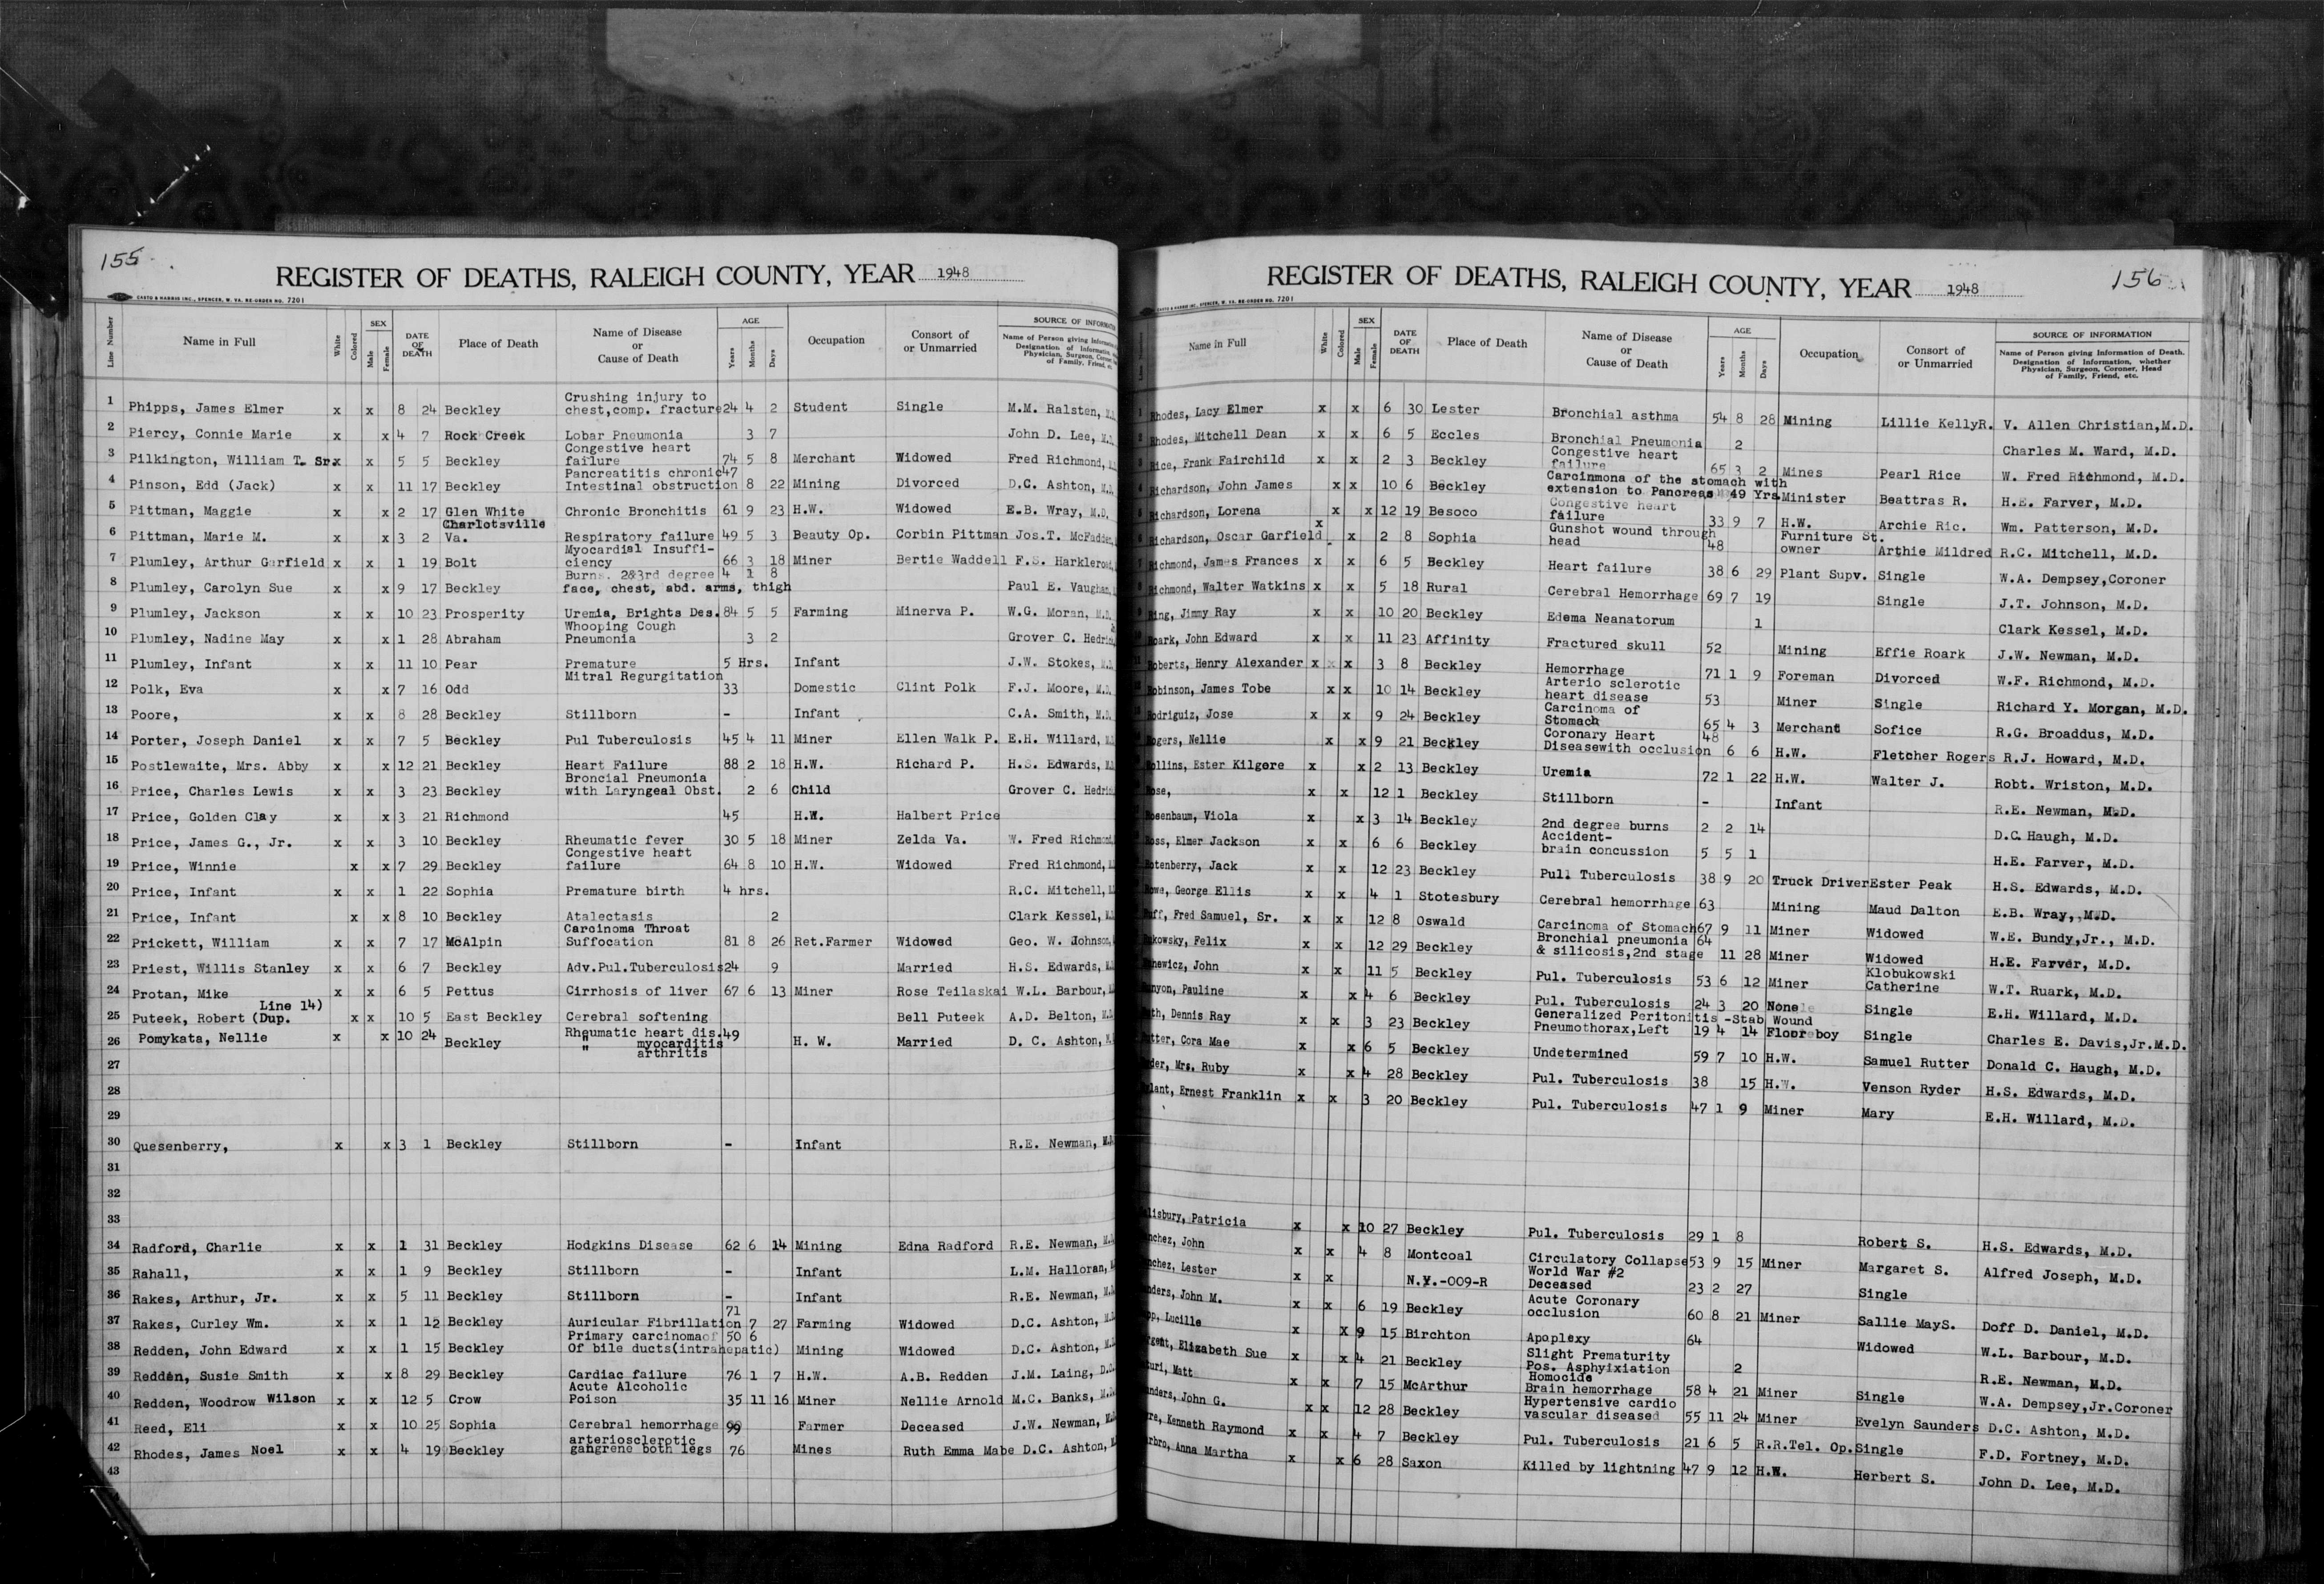 155
REGISTER OF DEATHS, RALEIGH COUNTY, YEAR 1948
CASTO & HARRIS INC., SPENCER, W. VA. RE-ORDER NO. 7201
Line Number Name in Full White Colored SEX Male Female DATE OF DEATH Place of Death Name of Disease or Cause of Death AGE Years Months Days Occupation Consort of or Unmarried SOURCE OF
Name of Person giving
Designation of
Physician, Surgeon,
of Family, Friend,
1 Phipps, James Elmer x x 8 24 Beckley Crushing injury to chest,comp. fracture 24 4 2 Student Single M.M. Ralsten,
2 Piercy, Connie Marie x x 4 7 Rock Creek Lobar Pneumonia 3 7 John D. Lee,
3 Pilkington, William T. Sr. x x 5 5 Beckley Congestive heart failure 74 5 8 Merchant Widowed Fred Richmond,
4 Pinson, Edd (Jack) x x 11 17 Beckley Pancreatitis chronic Intestinal obstruction 47 8 22 Mining Divorced D.C. Ashton,
5 Pittman, Maggie x x 2 17 Glen White Chronic Bronchitis 61 9 23 H.W. Widowed E.B. Wray, M.D.
6 Pittman, Marie M. x x 3 2 Charlotsville Va. Respiratory failure 49 5 3 Beauty Op. Corbin Pittman Jos.T. McFadden,
7 Plumley, Arthur Garfield x x 1 19 Bolt Myocardial Insuffi-ciency 66 3 18 Miner Bertie Waddell F.S. Harkleroad,
8 Plumley, Carolyn Sue x x 9 17 Beckley Burns. 2&3rd degree face, chest, abd. arms, thigh 4 1 8 Paul E. Vaughan,
9 Plumley, Jackson x x 10 23 Prosperity Uremia, Brights Des. 84 5 5 Farming Minerva P. W.G. Moran, M.D.
10 Plumley, Nadine May x x 1 28 Abraham Whooping Cough Pneumonia 3 2 Grover C.
11 Plumley, Infant x x 11 10 Pear Premature 5 Hrs. Infant J.W. Stokes,
12 Polk, Eva x x 7 16 Odd Mitral Regurgitation 33 Domestic Clint Polk F.J. Moore, M.D.
13 Poore, x x 8 28 Beckley Stillborn - Infant C.A. Smith, M.D.
14 Porter, Joseph Daniel x x 7 5 Beckley Pul Tuberculosis 45 4 11 Miner Ellen Walk P. E.H. Willard,
15 Postlewaite, Mrs. Abby x x 12 21 Beckley Heart Failure 88 2 18 H.W. Richard P. H.S. Edwards,
16 Price, Charles Lewis x x 3 23 Beckley Broncial Pneumonia with Laryngeal Obst. 2 6 Child Grover C.
17 Price, Golden Clay x x 3 21 Richmond 45 H.W. Halbert Price
18 Price, James G., Jr. x x 3 10 Beckley Rheumatic fever 30 5 18 Miner Zelda Va. W. Fred Richmond,
19 Price, Winnie x x 7 29 Beckley Congestive heart failure 64 8 10 H.W. Widowed Fred Richmond,
20 Price, Infant x x 1 22 Sophia Premature birth 4 hrs. R.C. Mitchell,
21 Price, Infant x x 8 10 Beckley Atalectasis 2 Clark Kessel,
22 Prickett, William x x 7 17 McAlpin Carcinoma Throat Suffocation 81 8 26 Ret.Farmer Widowed Geo. W. Johnson,
23 Priest, Willis Stanley x x 6 7 Beckley Adv.Pul.Tuberculosis 24 9 Married H.S. Edwards,
24 Protan, Mike x x 6 5 Pettus Cirrhosis of liver 67 6 13 Miner Rose Teilaskai W.L. Barbour,
25 Puteek, Robert (Dup. Line 14) x x 10 5 East Beckley Cerebral softening Bell Puteek A.D. Belton,
26 Pomykata, Nellie x x 10 24 Beckley Rheumatic heart dis. " myocarditis " arthritis 49 H. W. Married D. C. Ashton,
27
28
29
30 Quesenberry, x x 3 1 Beckley Stillborn - Infant R.E. Newman,
31
32
33
34 Radford, Charlie x x 1 31 Beckley Hodgkins Disease 62 6 14 Mining Edna Radford R.E. Newman,
35 Rahall, x x 1 9 Beckley Stillborn - Infant L.M. Halloran,
36 Rakes, Arthur, Jr. x x 5 11 Beckley Stillborn - Infant R.E. Newman,
37 Rakes, Curley Wm. x x 1 12 Beckley Auricular Fibrillation 71 7 27 Farming Widowed D.C. Ashton,
38 Redden, John Edward x x 1 15 Beckley Primary carcinoma of Of bile ducts(intrahepatic) 50 6 Mining Widowed D.C. Ashton,
39 Redden, Susie Smith x x 8 29 Beckley Cardiac failure 76 1 7 H.W. A.B. Redden J.M. Laing,
40 Redden, Woodrow Wilson x x 12 5 Crow Acute Alcoholic Poison 35 11 16 Miner Nellie Arnold M.C. Banks,
41 Reed, Eli x x 10 25 Sophia Cerebral hemorrhage 99 Farmer Deceased J.W. Newman,
42 Rhodes, James Noel x x 4 19 Beckley arteriosclerotic gangrene both legs 76 Mines Ruth Emma Mabe D.C. Ashton,
43
156
REGISTER OF DEATHS, RALEIGH COUNTY, YEAR 1948
SPENCER, W. VA. RE-ORDER NO. 7201
Name in Full White Colored SEX Male Female DATE OF DEATH Place of Death Name of Disease or Cause of Death AGE Years Months Days Occupation Consort of or Unmarried SOURCE OF INFORMATION
Name of Person giving Information of Death.
Designation of Information, whether
Physician, Surgeon, Coroner, Head
of Family, Friend, etc.
Rhodes, Lacy Elmer x x 6 30 Lester Bronchial asthma 54 8 28 Mining Lillie KellyR. V. Allen Christian,M.D.
Rhodes, Mitchell Dean x x 6 5 Eccles Bronchial Pneumonia 2 Charles M. Ward, M.D.
Rice, Frank Fairchild x x 2 3 Beckley Congestive heart failure 65 3 2 Mines Pearl Rice W. Fred Richmond, M.D.
Richardson, John James x x 10 6 Beckley Carcinmona of the stomach with extension to Pancreas 49 Yrs. Minister Beattras R. H.E. Farver, M.D.
Richardson, Lorena x x 12 19 Besoco Congestive heart failure 33 9 7 H.W. Archie Ric. Wm. Patterson, M.D.
Richardson, Oscar Garfield x x 2 8 Sophia Gunshot wound through head 48 Furniture St. owner Arthie Mildred R.C. Mitchell, M.D.
Richmond, James Frances x x 6 5 Beckley Heart failure 38 6 29 Plant Supv. Single W.A. Dempsey,Coroner
Richmond, Walter Watkins x x 5 18 Rural Cerebral Hemorrhage 69 7 19 Single J.T. Johnson, M.D.
Ring, Jimmy Ray x x 10 20 Beckley Edema Neanatorum 1 Clark Kessel, M.D.
Roark, John Edward x x 11 23 Affinity Fractured skull 52 Mining Effie Roark J.W. Newman, M.D.
Roberts, Henry Alexander x x 3 8 Beckley Hemorrhage 71 1 9 Foreman Divorced W.F. Richmond, M.D.
Robinson, James Tobe x x 10 14 Beckley Arterio sclerotic heart disease 53 Miner Single Richard Y. Morgan, M.D.
Rodriguiz, Jose x x 9 24 Beckley Carcinoma of Stomach 65 4 3 Merchant Sofice R.G. Broaddus, M.D.
Rogers, Nellie x x 9 21 Beckley Coronary Heart Diseasewith occlusion 48 6 6 H.W. Fletcher Rogers R.J. Howard, M.D.
Rollins, Ester Kilgore x x 2 13 Beckley Uremia 72 1 22 H.W. Walter J. Robt. Wriston, M.D.
Rose, x x 12 1 Beckley Stillborn - Infant R.E. Newman, M.D.
Rosenbaum, Viola x x 3 14 Beckley 2nd degree burns 2 2 14 D.C. Haugh, M.D.
Ross, Elmer Jackson x x 6 6 Beckley Accident- brain concussion 5 5 1 H.E. Farver, M.D.
Rotenberry, Jack x x 12 23 Beckley Pull Tuberculosis 38 9 20 Truck Driver Ester Peak H.S. Edwards, M.D.
Rowe, George Ellis x x 4 1 Stotesbury Cerebral hemorrhage 63 Mining Maud Dalton E.B. Wray, M.D.
Ruff, Fred Samuel, Sr. x x 12 8 Oswald Carcinoma of Stomach 67 9 11 Miner Widowed W.E. Bundy,Jr., M.D.
Felix x x 12 29 Beckley Bronchial pneumonia & silicosis,2nd stage 64 11 28 Miner Widowed H.E. Farver, M.D.
John x x 11 5 Beckley Pul. Tuberculosis 53 6 12 Miner Klobukowski Catherine W.T. Ruark, M.D.
Pauline x x 4 6 Beckley Pul. Tuberculosis 24 3 20 None Single E.H. Willard, M.D.
Dennis Ray x x 3 23 Beckley Generalized Peritonitis -Stab Wound Pneumothorax,Left 19 4 14 Floor boy Single Charles E. Davis,Jr.M.D.
Rutter, Cora Mae x x 6 5 Beckley Undetermined 59 7 10 H.W. Samuel Rutter Donald C. Haugh, M.D.
Ryder, Mrs. Ruby x x 4 28 Beckley Pul. Tuberculosis 38 15 H.W. Venson Ryder H.S. Edwards, M.D.
Ernest Franklin x x 3 20 Beckley Pul. Tuberculosis 47 1 9 Miner Mary E.H. Willard, M.D.
Salisbury, Patricia x x 10 27 Beckley Pul. Tuberculosis 29 1 8 Robert S. H.S. Edwards, M.D.
Sanchez, John x x 4 8 Montcoal Circulatory Collapse 53 9 15 Miner Margaret S. Alfred Joseph, M.D.
Sanchez, Lester x x N.Y.-009-R World War #2 Deceased 23 2 27 Single
John M. x x 6 19 Beckley Acute Coronary occlusion 60 8 21 Miner Sallie MayS. Doff D. Daniel, M.D.
Lucille x x 9 15 Birchton Apoplexy 64 Widowed W.L. Barbour, M.D.
Sargent, Elizabeth Sue x x 4 21 Beckley Slight Prematurity Pos. Asphyixiation 2 R.E. Newman, M.D.
Matt x x 7 15 McArthur Homocide Brain hemorrhage 58 4 21 Miner Single W.A. Dempsey,Jr.Coroner
Saunders, John G. x x 12 28 Beckley Hypertensive cardio vascular diseased 55 11 24 Miner Evelyn Saunders D.C. Ashton, M.D.
Kenneth Raymond x x 4 7 Beckley Pul. Tuberculosis 21 6 5 R.R.Tel. Op. Single F.D. Fortney, M.D.
Anna Martha x x 6 28 Saxon Killed by lightning 47 9 12 H.W. Herbert S. John D. Lee, M.D.